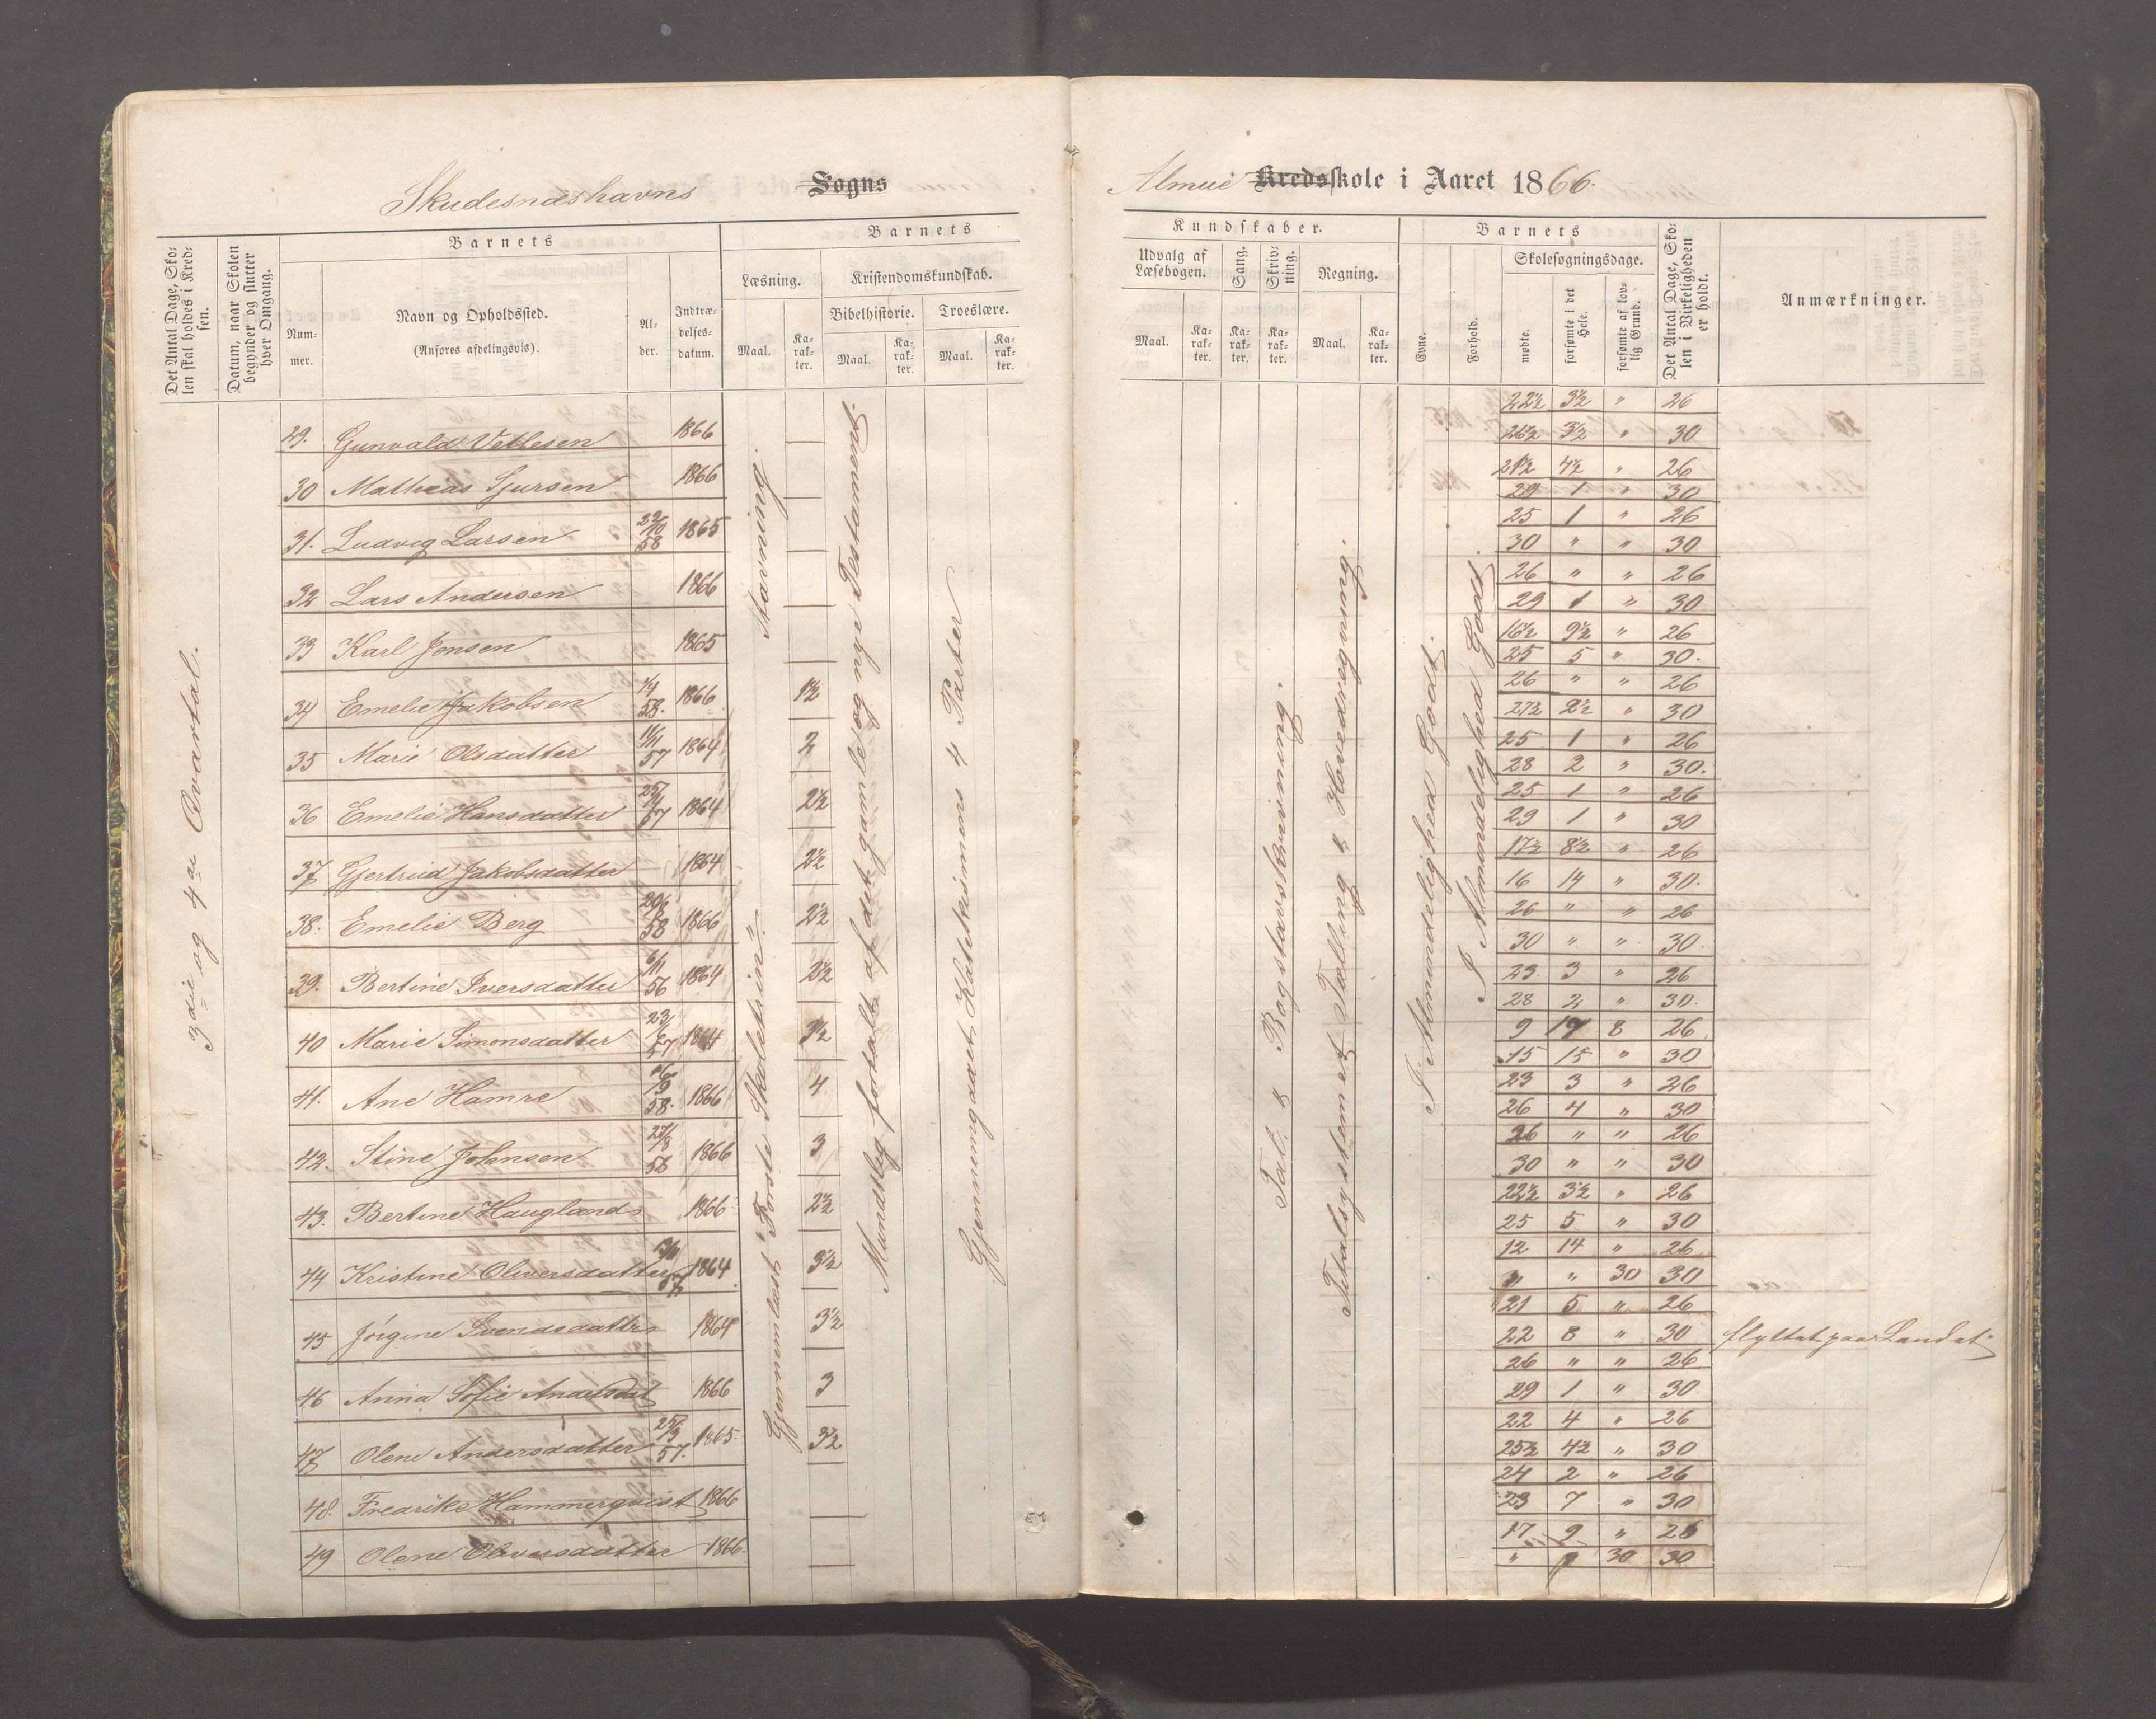 Skudesnæshavns Sogns
Almue Kredsskole i Aaret 1866.
Det Antal Dage, Skolen skal holdes i Kredsen.
Datum, naar Skolen begynder og slutter hver Omgang.
Barnets
Nummer.
Navn og Opholdssted.
(Anføres afdelingsvis).
Alder.
Indtrædelsesdatum.
Barnets
Læsning.
Maal.
Karakter.
Kristendomskundskab.
Bibelhistorie.
Maal.
Karakter.
Troeslære.
Maal.
Karakter.
Kundskaber.
Udvalg af Læsebogen.
Maal.
Karakter.
Sang.
Karakter.
Skrivning.
Karakter.
Regning.
Maal.
Karakter.
Barnets
Evne.
Forhold.
Skolesøgningsdage.
mødte.
forsømte i det Hele.
forsømte af lovlig Grund.
Det Antal Dage, Skolen i Virkeligheden er holdt.
Anmærkninger.
3die og 4de Qvartal.
Stavning.
Gjennemlæst "Første Skoletrin".
Mundtlig fortalt af det gamle og nye Testament.
Gjennemgaaet Katekismens 4 Parter
Tal & Bogstavskrivning.
Titalsystemet Tælling & Hovedregning.
I Almindelighed Godt.
I Almindelighed Godt.
29. Gunvald Vetlesen 1866 22½ 3½ " 26
26½ 3½ " 30
30 Mathias Sjursen 1866 21½ 4½ " 26
29 1 " 30
31. Ludvig Larsen 22/10 58 1865 25 1 " 26
30 " " 30
32 Lars Andersen 1866 26 " " 26
29 1 " 30
33 Karl Jensen 1865 16½ 9½ " 26
25 5 " 30.
34 Emelie Jakobsen 1866 1½ 26 " " 26
27½ 2½ " 30
35 Marie Olsdatter 11/11 57 1864 2 25 1 " 26
28 2 " 30.
36 Emelie Hansdatter 1864 2½ 25 1 " 26
29 1 " 30
37 Gjertrud Jakobsdatter 1864 2½ 17½ 8½ " 26
16 14 " 30.
38. Emelie Berg 1866 2½ 26 " " 26
30 " " 30.
39. Bertine Iversdatter 6/11 56 1864 2½ 23 3 " 26
28 2 " 30.
40 Marie Simonsdatter 23/6 57 1864 3½ 9 17 8 26
15 15 " 30
41. Ane Hamre 16/9 58. 1866 4 23 3 " 26
26 4 " 30
42. Stine Johnsen 27/8 58 1866 3 26 " " 26
30 " " 30
43. Bertine Haugland 1866 2½ 22½ 3½ " 26
25 5 " 30
44 Kristine Oliversdatter 13/11 57 1864 3½ 12 14 " 26
" " 30 30
45 Jörgine Svendsdatter 1864 3½ 21 5 " 26
22 8 " 30 flyttet paa Landet.
46 Anna Sofie Andersdat 1866 3 26 " " 26
29 1 " 30
47 Olene Andersdatter 25/3 57. 1865. 3½ 22 4 " 26
25½ 4½ " 30
48. Fredrike Hammerqvist 1866 24 2 " 26
23 7 " 30
49 Olene Oliversdatter 1866. 17 9 " 26
" 30 30